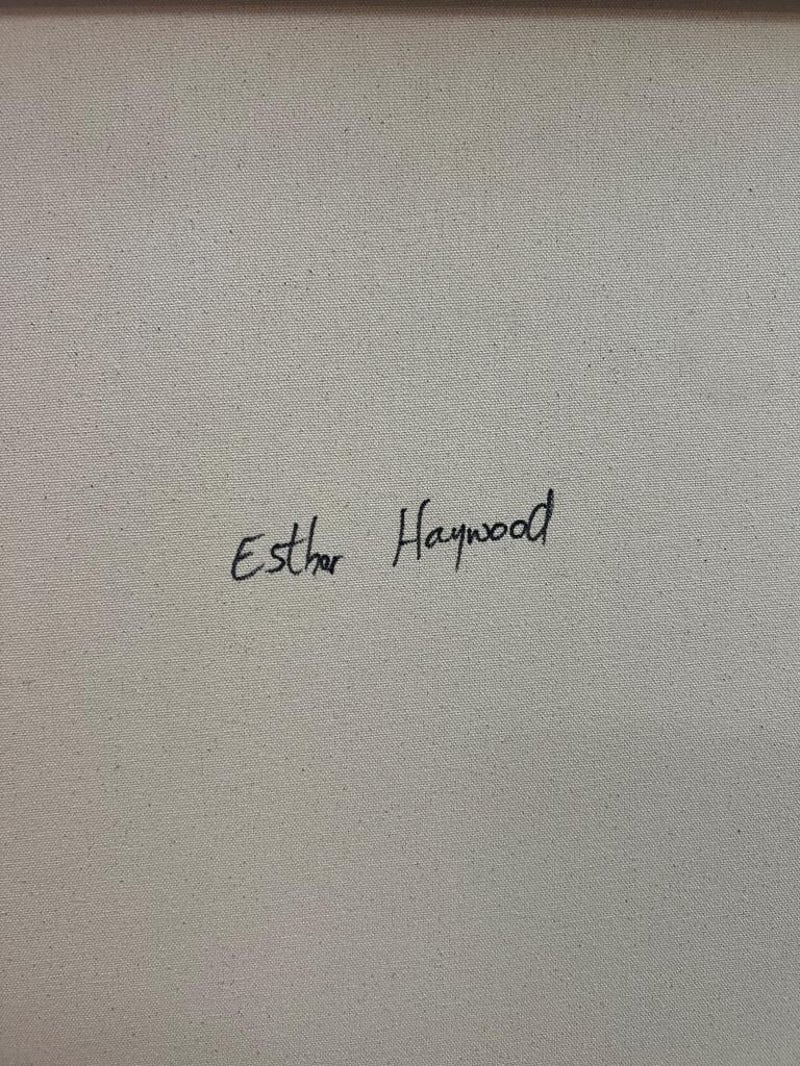 Esther Haywood